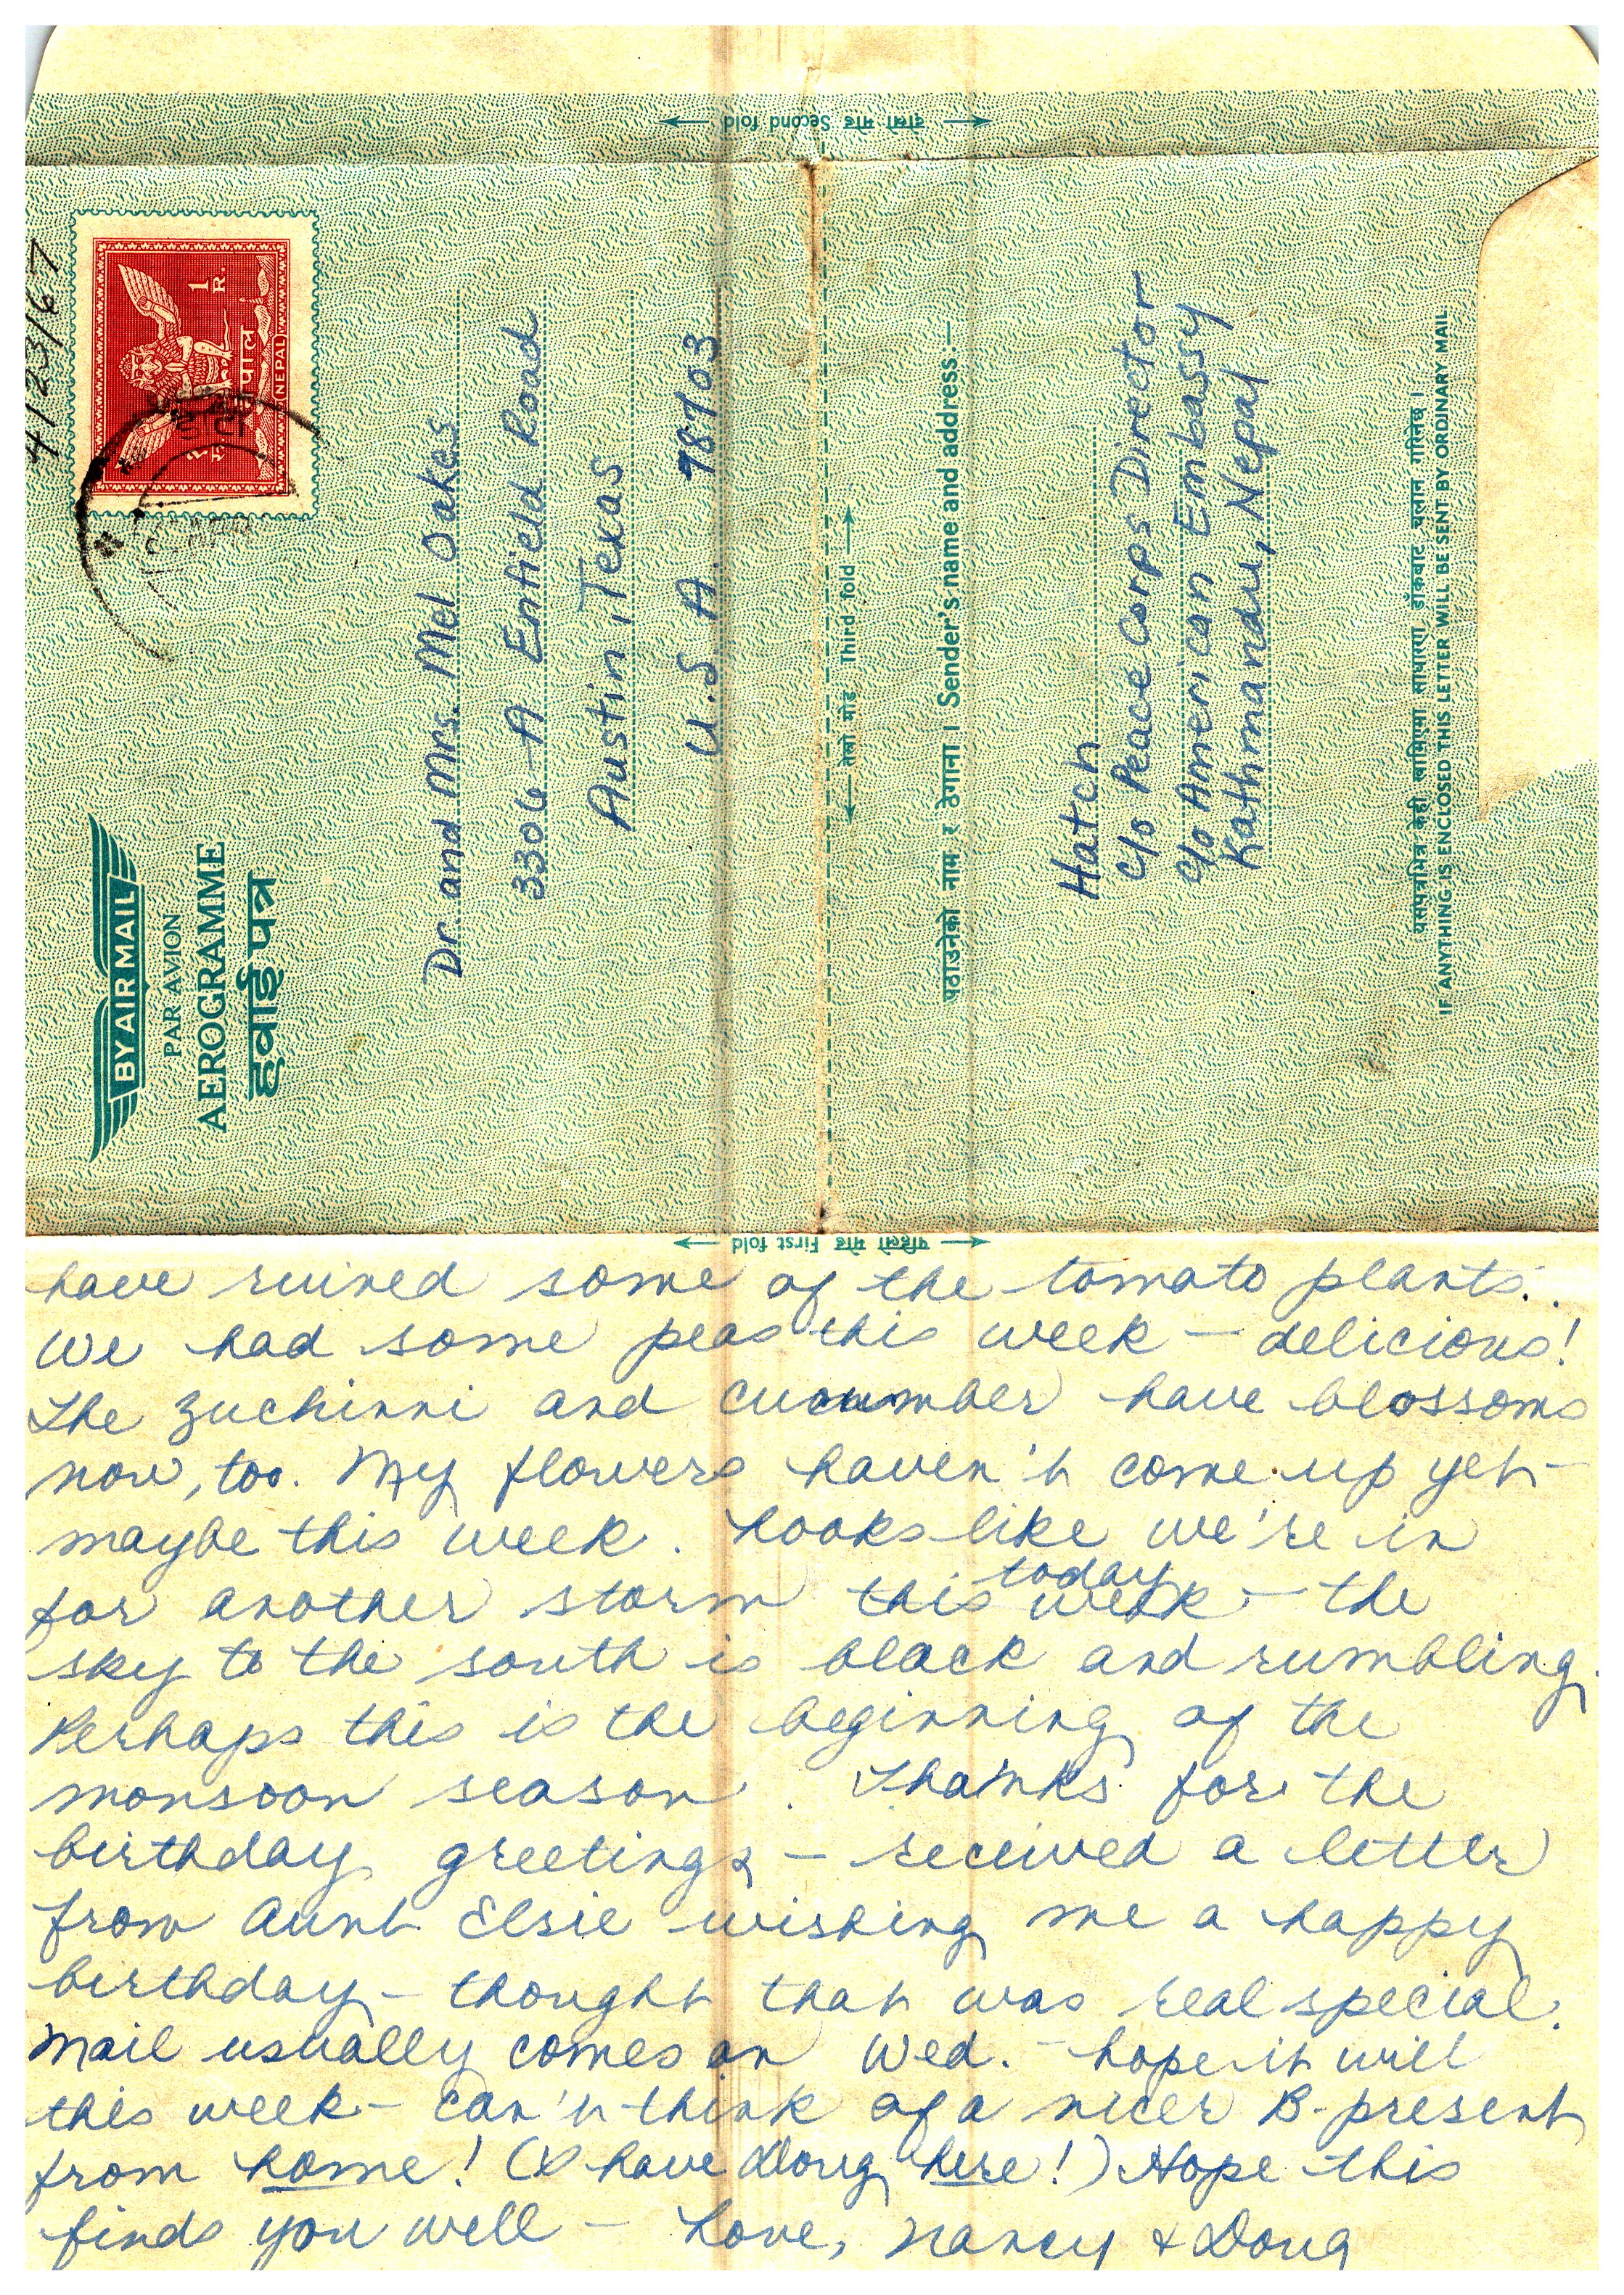 4/23/67
१ R.
नेपाल
NEPAL
BY AIR MAIL
PAR AVION
AEROGRAMME
हवाई पत्र
Dr. and Mrs. Mel Oakes
3306-A Enfield Road
Austin, Texas
U.S.A. 78703
दोस्रो मोड Second fold
तेस्रो मोड Third fold
पठाउनेको नाम र ठेगाना । Sender's name and address.—
Hatch
c/o Peace Corps Director
c/o American Embassy
Kathmandu, Nepal
यसपत्रभित्र केही खामिएमा साधारण डाँकबाट चलान गरिनेछ ।
IF ANYTHING IS ENCLOSED THIS LETTER WILL BE SENT BY ORDINARY MAIL
पहिलो मोड First fold
have ruined some of the tomato plants.
We had some peas this week — delicious!
The zuchinni and cucumber have blossoms
now, too. My flowers haven't come up yet —
maybe this week. Looks like we're in
for another storm this week today — the
sky to the south is black and rumbling.
Perhaps this is the beginning of the
monsoon season. Thanks for the
birthday greetings — received a letter
from Aunt Elsie wishing me a happy
birthday — thought that was real special.
Mail usually comes on Wed. — hope it will
this week — can't think of a nicer B-present
from home! (I have Doug here!) Hope this
finds you well — Love, Nancy & Doug